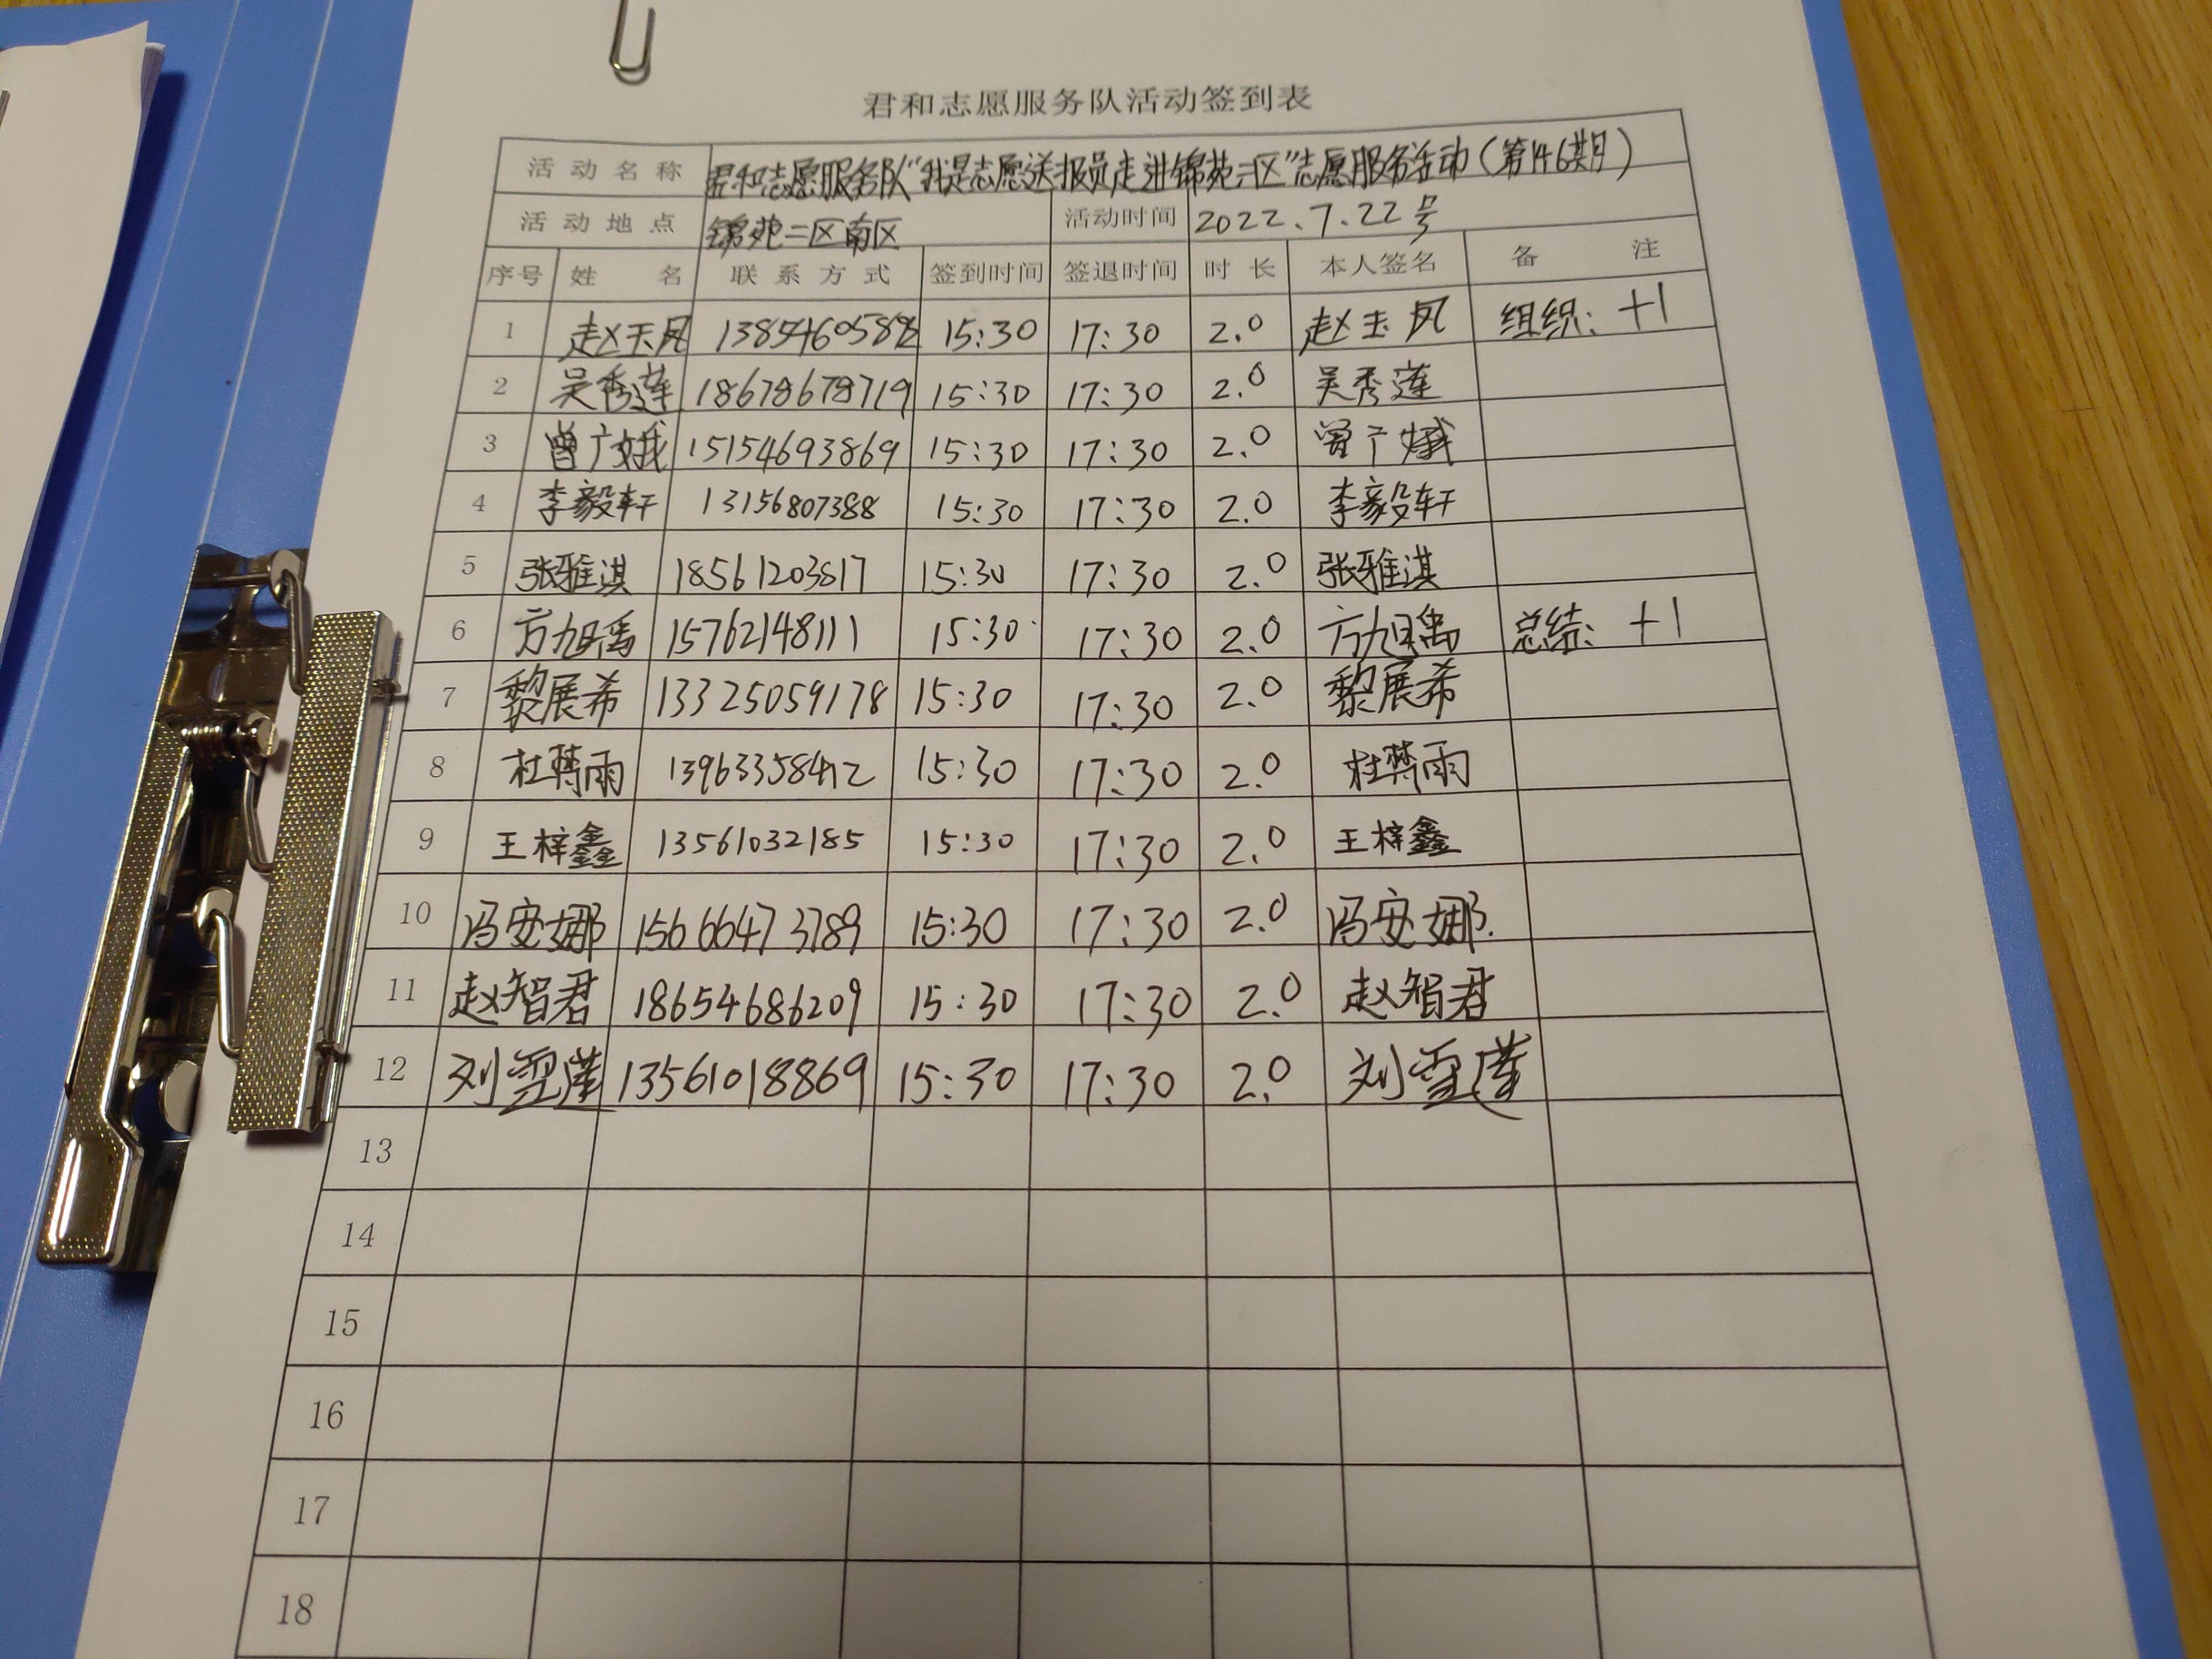 君和志愿服务队活动签到表
活动名称 君和志愿服务队“我是志愿送报员走进锦苑二区”志愿服务活动(第146期)
活动地点 锦苑二区南区 活动时间 2022.7.22号
序号 姓名 联系方式 签到时间 签退时间 时长 本人签名 备注
1 赵玉凤 15:30 17:30 2.0 赵玉凤 组织: +1
2 吴秀莲 18678678719 15:30 17:30 2.0 吴秀莲
3 曾广娥 15154693869 15:30 17:30 2.0 曾广娥
4 李毅轩 13156807388 15:30 17:30 2.0 李毅轩
5 张雅淇 18561203817 15:30 17:30 2.0 张雅淇
6 方旭禹 15762148111 15:30 17:30 2.0 方旭禹 总结: +1
7 黎展希 13325059178 15:30 17:30 2.0 黎展希
8 13963358412 15:30 17:30 2.0
9 王梓鑫 13561032185 15:30 17:30 2.0 王梓鑫
10 冯安娜 15666473789 15:30 17:30 2.0 冯安娜.
11 赵智君 18654686209 15:30 17:30 2.0 赵智君
12 刘雪莲 13561018869 15:30 17:30 2.0 刘雪莲
13
14
15
16
17
18